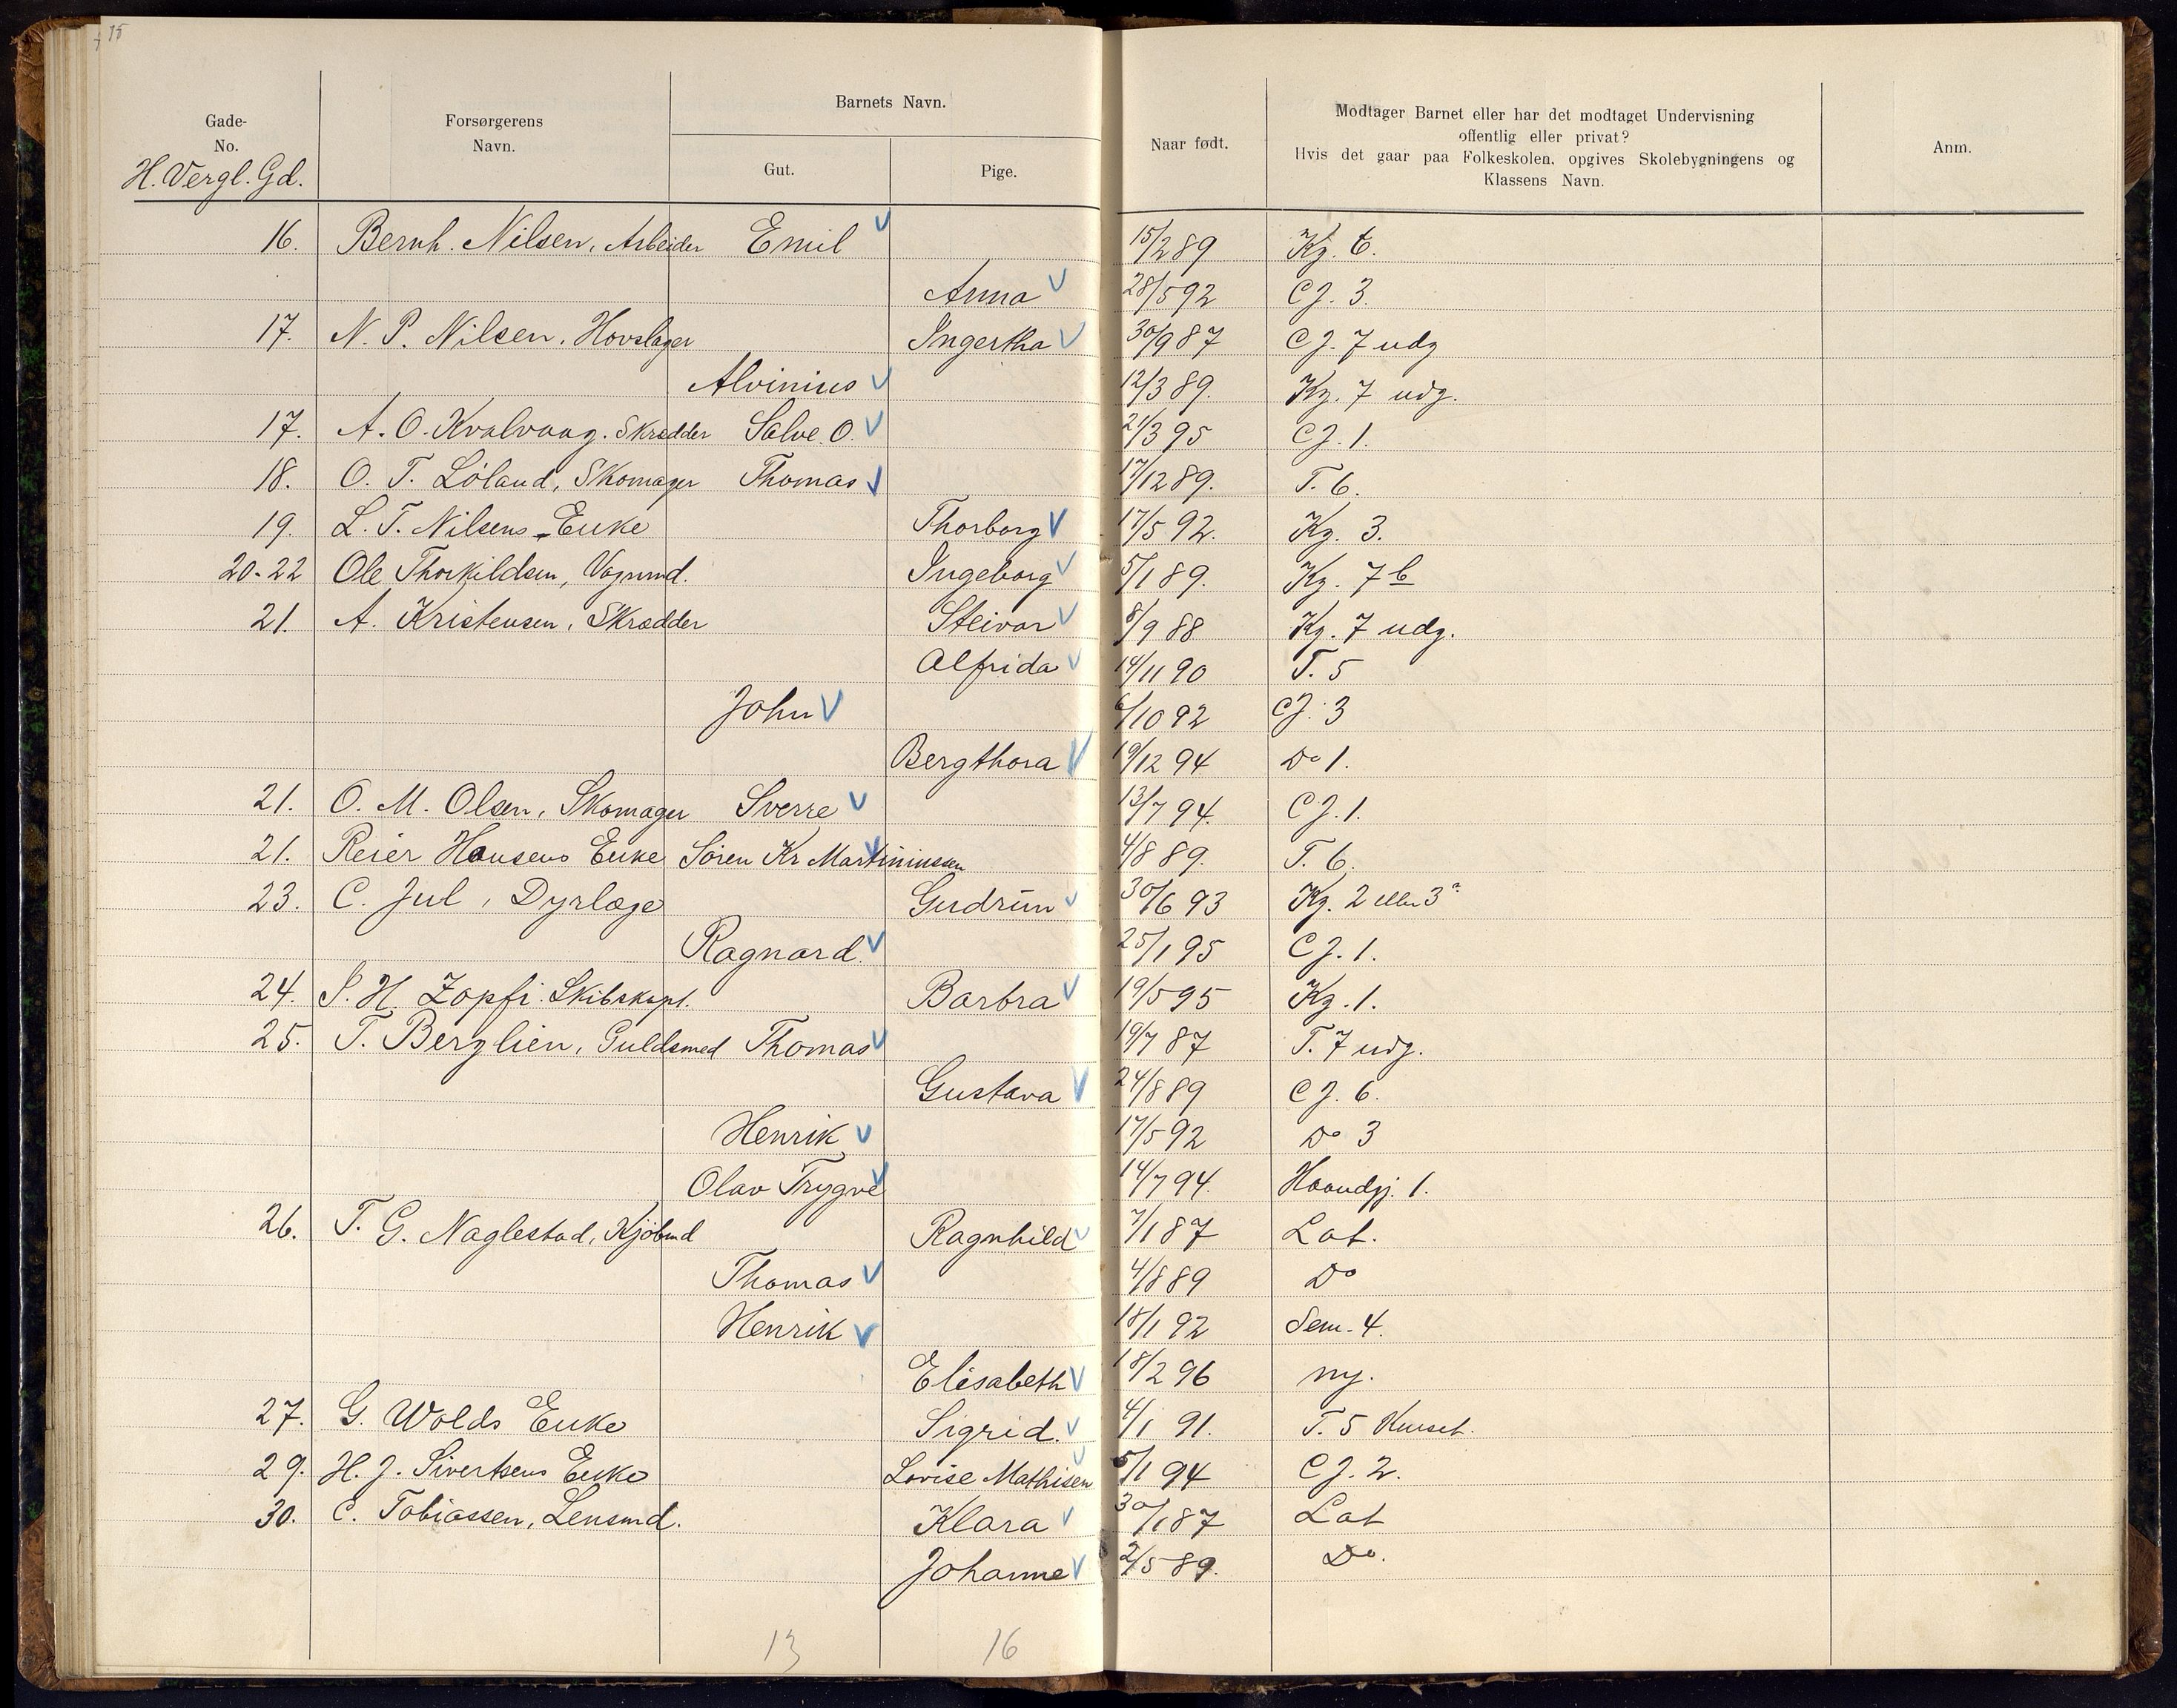 75
Gade-
No.
H. Vergl. Gd.
Forsørgerens
Navn.
Barnets Navn.
Gut.
Pige.
Naar født.
Modtager Barnet eller har det modtaget Undervisning
offentlig eller privat?
Hvis det gaar paa Folkeskolen, opgives Skolebygningens og
Klassens Navn.
Anm.
16. Bernh. Nilsen, Arbeider Emil 15/2 89 Kg. 6.
Anna 28/5 92 CJ. 3.
17. N. P. Nilsen, Hovslager Ingertha 30/9 87 CJ. 7 udg
Alvinius 12/3 89. Kg. 7 udg.
17. A. O. Kvalvaag. Skrædder Salve O. 21/3 95 CJ. 1.
18. O. T. Löland, Skomager Thomas 17/12 89. T. 6.
19. L. T. Nilsens Enke Thorborg 17/5 92. Kg. 3.
20-22 Ole Thorkildsen, Vognmd. Ingeborg 5/1 89. Kg. 7 b
21. A. Kristensen, Skrædder Steivor 8/9 88 Kg. 7 udg.
Alfrida 14/11 90 T. 5
John 6/10 92 CJ. 3
Bergthora 19/12 94 Do 1.
21. O. M. Olsen, Skomager Sverre 13/7 94. CJ. 1.
21. Reier Hansens Enke Sören Kr Martiniussen 4/8 89. T. 6.
23. C. Jul, Dyrlæge Gudrun 30/6 93 Kg. 2 eller 3a
Ragnard. 25/1 95 CJ. 1.
24. S. H. Zopfi. Skibskapt. Barbra 19/5 95 Kg. 1.
25. T. Berglien, Guldsmed Thomas 19/7 87 T. 7 udg.
Gustava 24/8 89 CJ. 6.
Henrik 17/5 92 Do 3
Olav Trygve 14/7 94. Haandgj. 1.
26. T. G. Naglestad, Kjöbmd Ragnhild 7/1 87 Lat.
Thomas 4/8 89 Do
Henrik 18/1 92 Sem. 4.
Elisabeth 18/2 96 ny.
27. G. Wolds Enke Sigrid. 4/1 91. T. 5
29. H. J. Sivertsens Enke Lovise Mathisen 5/1 94 CJ. 2.
30. C. Tobiassen, Lensmd. Klara 30/1 87 Lat
Johanne 2/5 89. Do.
13 16